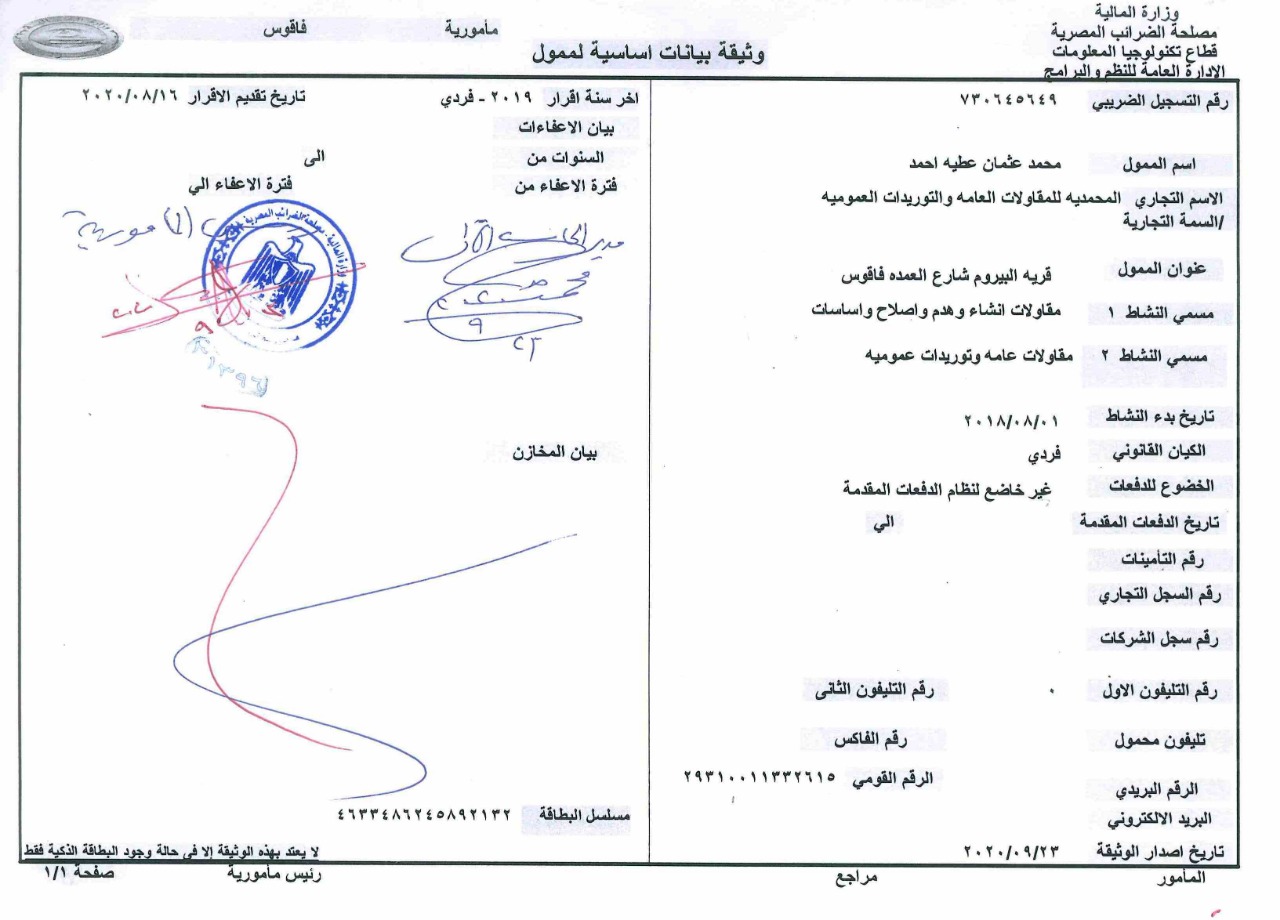 وزارة المالية
مصلحة الضرائب المصرية
قطاع تكنولوجيا المعلومات
الإدارة العامة للنظم والبرامج
مأمورية فاقوس
وثيقة بيانات اساسية لممول
رقم التسجيل الضريبي ٧٣٠٦٤٥٦٤٩
اسم الممول محمد عثمان عطيه احمد
الاسم التجاري المحمديه للمقاولات العامه والتوريدات العموميه
/السمة التجارية
عنوان الممول قريه البيروم شارع العمده فاقوس
مسمي النشاط ١ مقاولات انشاء وهدم واصلاح واساسات
مسمي النشاط ٢ مقاولات عامه وتوريدات عموميه
تاريخ بدء النشاط ٢٠١٨/٠٨/٠١
الكيان القانوني فردي
الخضوع للدفعات غير خاضع لنظام الدفعات المقدمة
تاريخ الدفعات المقدمة الي
رقم التأمينات
رقم السجل التجاري
رقم سجل الشركات
رقم التليفون الاول ٠ رقم التليفون الثانى
تليفون محمول رقم الفاكس
الرقم البريدي الرقم القومي ٢٩٣١٠٠١١٣٣٢٦١٥
البريد الالكتروني
تاريخ اصدار الوثيقة ٢٠٢٠/٠٩/٢٣
اخر سنة اقرار ٢٠١٩ - فردي تاريخ تقديم الاقرار ٢٠٢٠/٠٨/١٦
بيان الاعفاءات
السنوات من الى
فترة الاعفاء من فترة الاعفاء الي
وزارة المالية - مصلحة الضرائب المصرية
بيان المخازن
مسلسل البطاقة ٤٦٣٣٤٨٦٢٤٥٨٩٢١٣٢
لا يعتد بهذه الوثيقة إلا فى حالة وجود البطاقة الذكية فقط
المأمور مراجع رئيس مأمورية صفحة ١/١